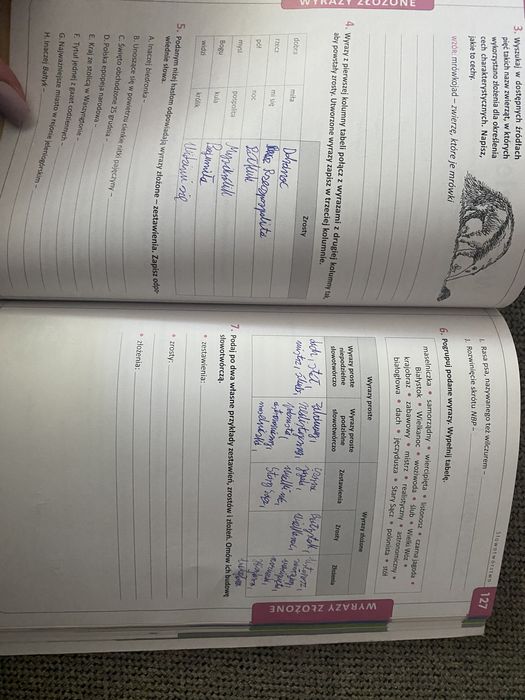 WYRAZY ZŁOŻONE
3. Wyszukaj w dostępnych źródłach
pięć takich nazw zwierząt, w których
wykorzystano złożenia dla określenia
cech charakterystycznych. Napisz,
jakie to cechy.
WZÓR: mrówkojad – zwierzę, które je mrówki
4. Wyrazy z pierwszej kolumny tabeli połącz z wyrazami z drugiej kolumny tak,
aby powstały zrosty. Utworzone wyrazy zapisz w trzeciej kolumnie.
Zrosty
dobra miła Dobranoc
rzecz mi się Rzeczpospolita
pół noc
mysi pospolita
Bogu kula Bogumiła
widzi królik Widzimi się
5. Podanym niżej hasłom odpowiadają wyrazy złożone – zestawienia. Zapisz odpo-
wiednie słowa.
A. Inaczej biedronka –
B. Unoszące się w powietrzu cienkie nitki pajęczyny –
C. Święto obchodzone 25 grudnia –
D. Polska epopeja narodowa –
E. Kraj ze stolicą w Waszyngtonie –
F. Tytuł jednej z gazet codziennych –
G. Najważniejsze miasto w rejonie jeleniogórskim –
H. Inaczej Bałtyk –
Słowotwórstwo
127
I. Rasa psa, nazywanego też wilczurem –
J. Rozwinięcie skrótu NBP –
6. Pogrupuj podane wyrazy. Wypełnij tabelę.
maselniczka • samorządny • wiercipięta • listonosz • czarna jagoda •
Białystok • Wielkanoc • woziwoda • ślub • Wielki Wóz •
krajobraz • zabawowy • mistrz • realistyczny • astronomiczny •
białogłowa • dach • jęczydusza • Stary Sącz • polonista • stół
Wyrazy proste Wyrazy złożone
Wyrazy proste niepodzielne słowotwórczo
Wyrazy proste podzielne słowotwórczo
Zestawienia
Zrosty
Złożenia
dach, stół,
mistrz, ślub,
7. Podaj po dwa własne przykłady zestawień, zrostów i złożeń. Omów ich budowę
słowotwórczą.
• zestawienia:
• zrosty:
• złożenia:
WYRAZY ZŁOŻONE